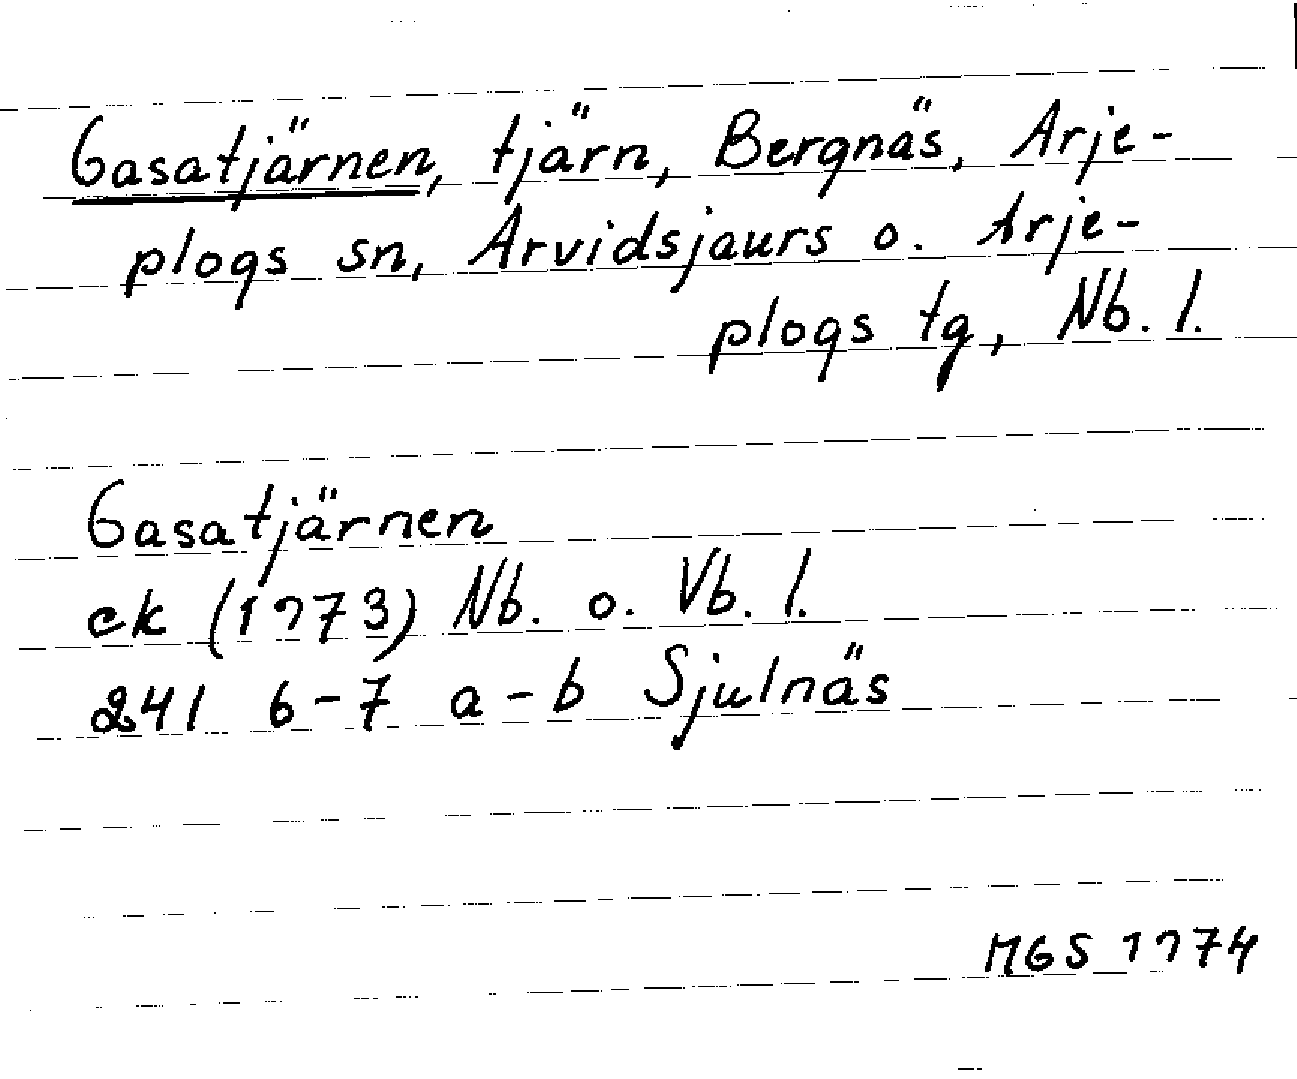 Gasatjärnen, tjärn, Bergnäs, Arje-
plogs sn, Arvidsjaurs o. Arje-
plogs tg, Nb. l.
Gasatjärnen
ek (1973) Nb. o. Vb. l.
241 6-7 a-b Sjulnäs
MGS 1974